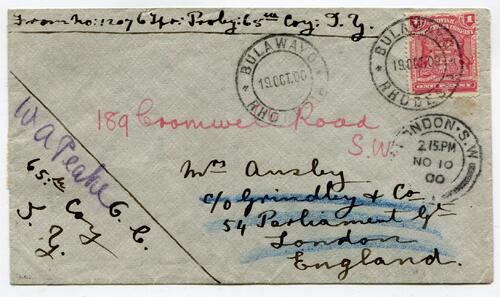 From No: 12076 Tpr: Pooley: 65th Coy: I. Y.
BULAWAYO
19 OCT. 00
RHO
BULAWAYO
19 OCT. 00
RHODESIA
1
LONDON. S.W.
2.15.PM
NO 10
00
189 Cromwell Road
S.W.
W A Peake
65th Coy
I. Y.
Mrs Ansby
c/o Grindley & Co
54 Parliament St
London
England.